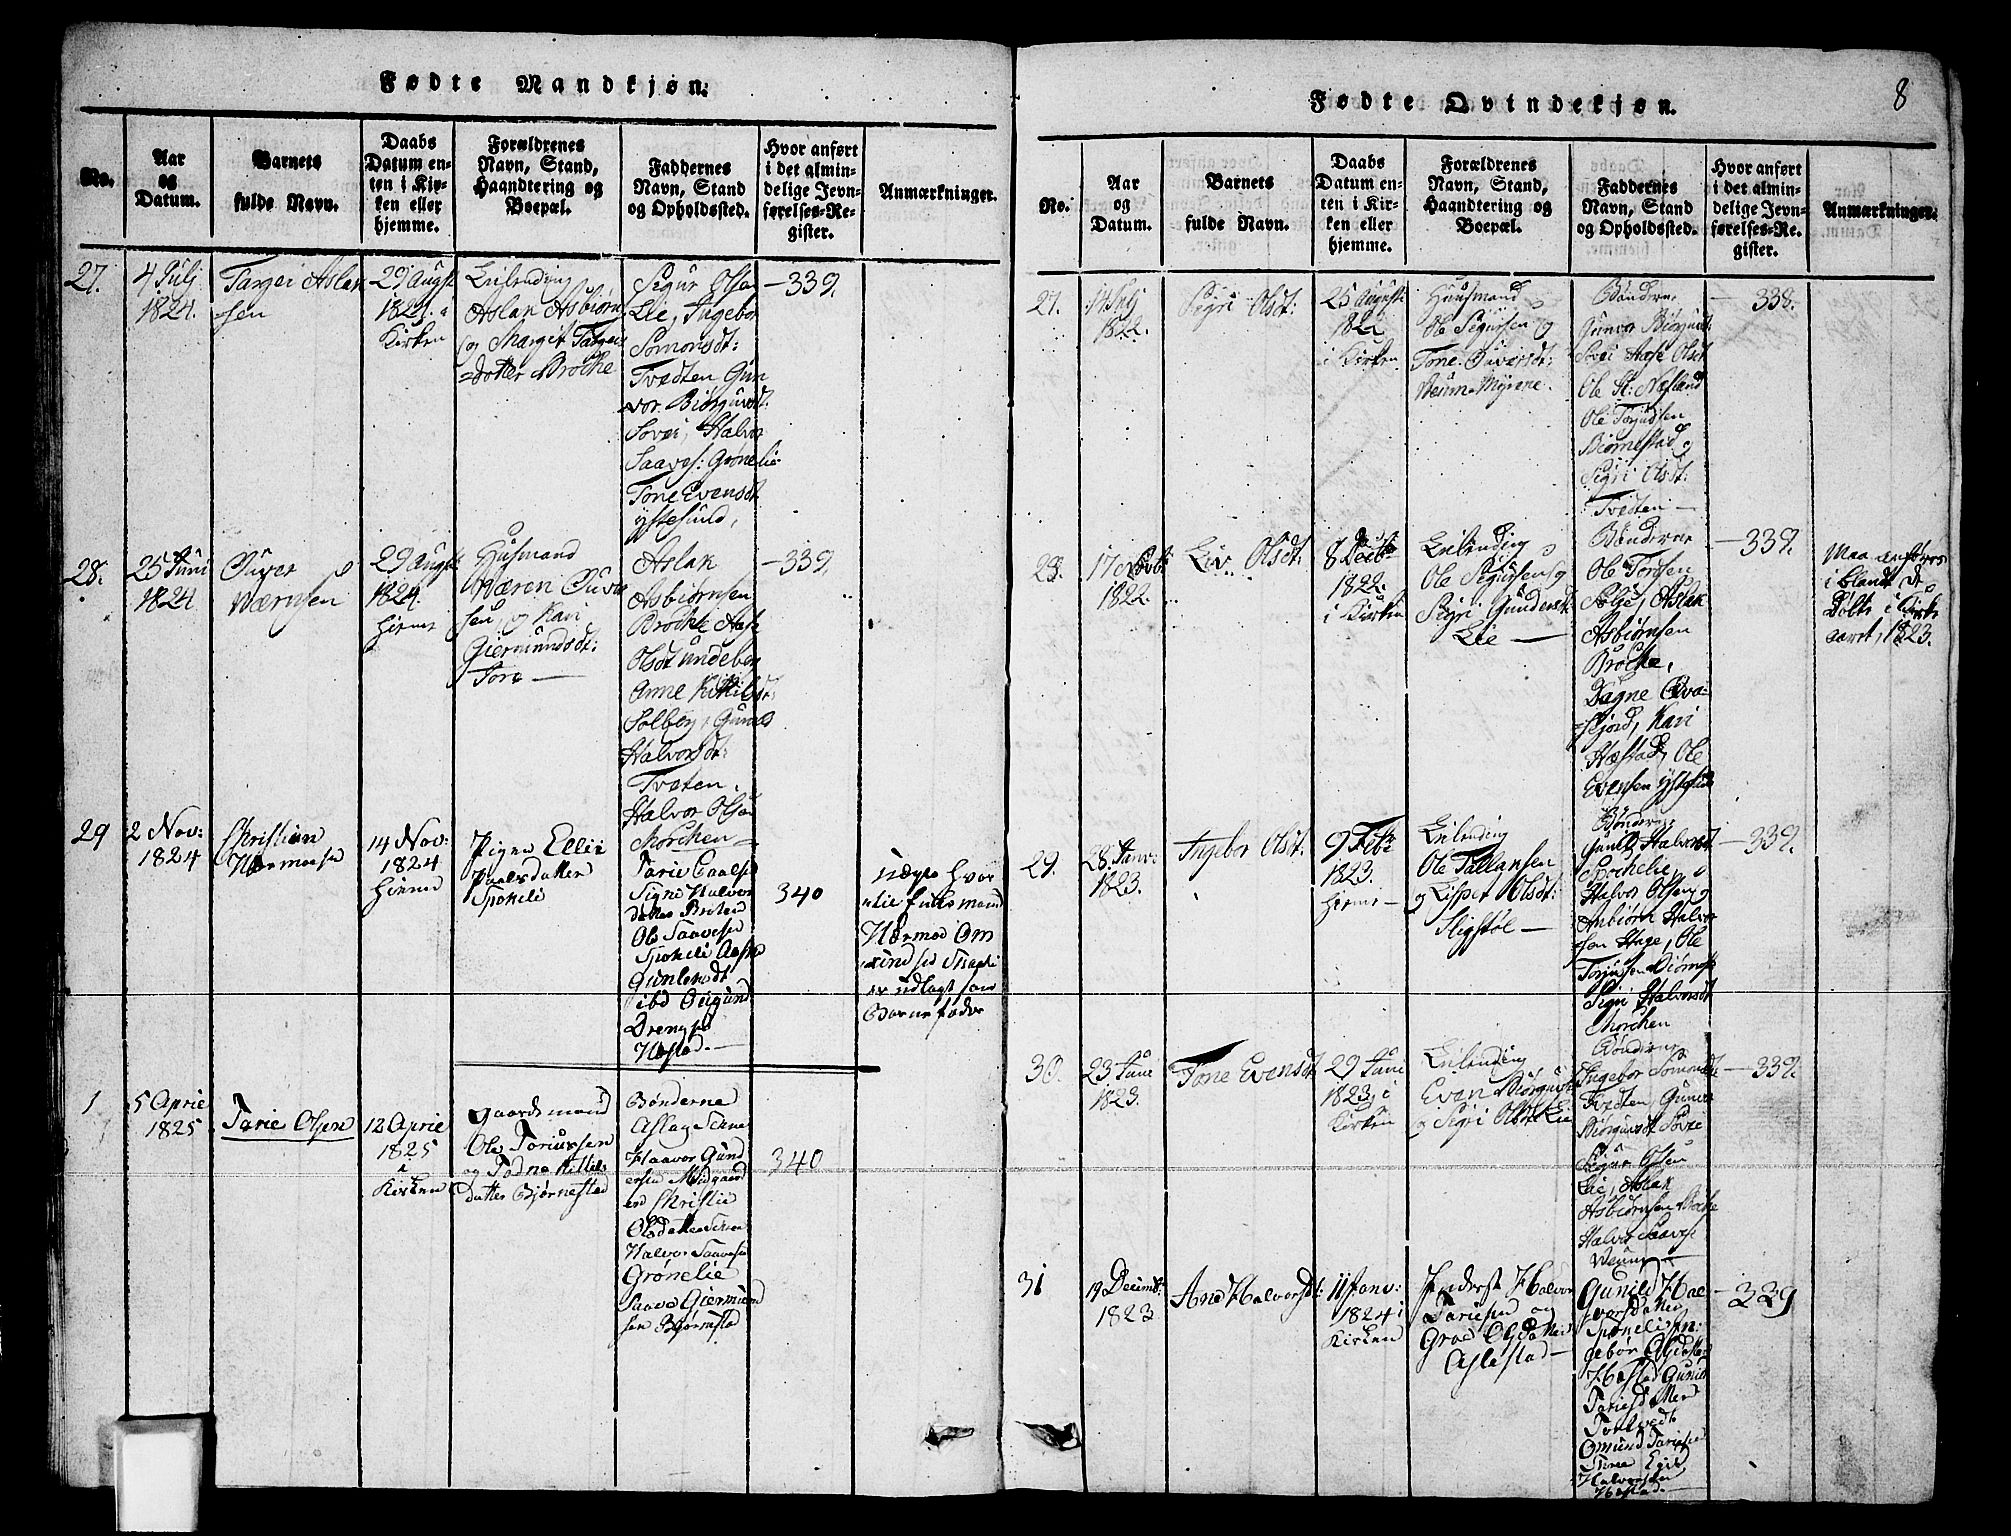 Fødte Mandkjøn.
No.
Aar
og
Datum.
Barnets
fulde Navn.
Daabs
Datum en-
ten i Kir-
ken eller
hjemme.
Forældrenes
Navn, Stand,
Haandtering og
Boepæl.
Faddernes
Navn, Stand
og Opholdssted.
Hvor anført
i det almin-
delige Jevn-
førelses-Re-
gister.
Anmærkninger.
27.
4 Julj
1824.
Targei Aslak
sen
29 Augst
1824. i
Kirken
Leilending
Aslak Asbiørns
og Margit Targeis
=dotter Brocke
Sigur Olsen
Lie, Ingebor
Tvedten Gun
vor Biørguvsdt.
Sovei, Halvor
Saaves: Grønelie
Tone Evensdt
ystesund,
-339.
28.
25 Juni
1824
Ouver
Værnsen
29 Augst
1824.
Hieme
Huusmand
Væren Ouve
sen, og Kari
Giermundsdt:
Tore —
Aslak
Asbiørnsen
Brocke Aase
Olsdt
Anne Kittilsdt:
Solberg, Guneld
Halvorsdt:
Tveten.
Halvor Olsen
-339.
29
2 Nov:
1824
Christian
Hermosen
14 Nov:
1824
Hieme
Pigen Elli
Paalsdatter
Spokeli
Tarie
Signe Halvor
datter
Ole Saavesen
Spokeli Aasne
Gunlensdt
ibd
Drengsen
Hæstad. —
340
Hermod Om
er udlagt som
Barnefader
1
5 Aprie
1825
Tarie Olsen
12 Aprie
1825
i
Kirken
Gaardsmand
Ole Toriussen
og Todne Kittels
datter Bjørnestad
Bønderne
Aslag
Haavor Gund
ersen
Christie
Olsdatter
Halvor Saavesen
Grønelie
Saave Giermund
sen Bjørnestad
340
Fødte Qvindekjøn.
8
No.
Aar
og
Datum.
Barnets
fulde Navn.
Daabs
Datum en-
ten i Kir-
ken eller
hjemme.
Forældrenes
Navn, Stand,
Haandtering og
Boepæl.
Faddernes
Navn, Stand
og Opholdssted.
Hvor anført
i det almin-
delige Jevn-
førelses-Re-
gister.
Anmærkninger.
27.
14 Julj
1822.
Sigri Olsdt:
25 Augusti
1822
i Kirken
Huusmand
Ole Sigursen og
Tone Ouversdt:
Veum Myrene.
Bønderne
Gunvor Biørguvsdt:
Sovei Aase Olsdt
Ole St: Næsland
Ole Torjusen
Biørnestad og
Sigri Olsdt:
Tvedten —
- 338.
28.
17 Novb:
1822.
Liv Olsdt:
8 Decbr
1822.
i Kirken
Leilending
Ole Sigursen og
Sigri Gundersdt:
Lie —
Bønderne
Ole Torsen
Aslak
Asbiørnsen
Brocke,
Dagne Qva-
=fjord, Kari
Hæstad, Ole
Evensen ystesund
- 339.
Maa anføres
i blandt de
Døbte i Kirke
aaret 1823.
29.
28 Janv:
1823.
Ingebor Olsdt:
9 Feb:
1823.
Hieme —
Leilending
Ole Tallaksen
og Lisper Olsdt:
Sligstøl —
Bønderne
Gunild Halvorsdt
Spockelie,
Halvor Olsen og
Anbiørn Halvor
sen Hage, Ole
Torjusen Biørnest
Sigri Halvorsdt
-339.
30.
23 Juni
1823.
Tone Evensdt
29 Juni
1823 i
Kirken
Leilending
Even Biørguvs
og Sigri Olsdt Lie
Bønderne
Ingebor
Tvedten Gunvor
Biørguvsdt Sovei
Sigur Olsen
Lie, Aslak
Asbiørnsen Brocke
Halvor Saavese
Veum —
- 339.
31
19 Decmb:
1823
Ane Halvorsdt:
11 Janv:
1824 i
Kirken
Inderst Halvor
Tariesen og
Groe Olsdatter
Aslestad —
Gunild Hal
vorsdatter
Spokeli In:
gebør Olsdatter
Hæstad Gunild
Tariesdatter
Omund Tariesen
Halvorsen
Hæstad. —
- 339